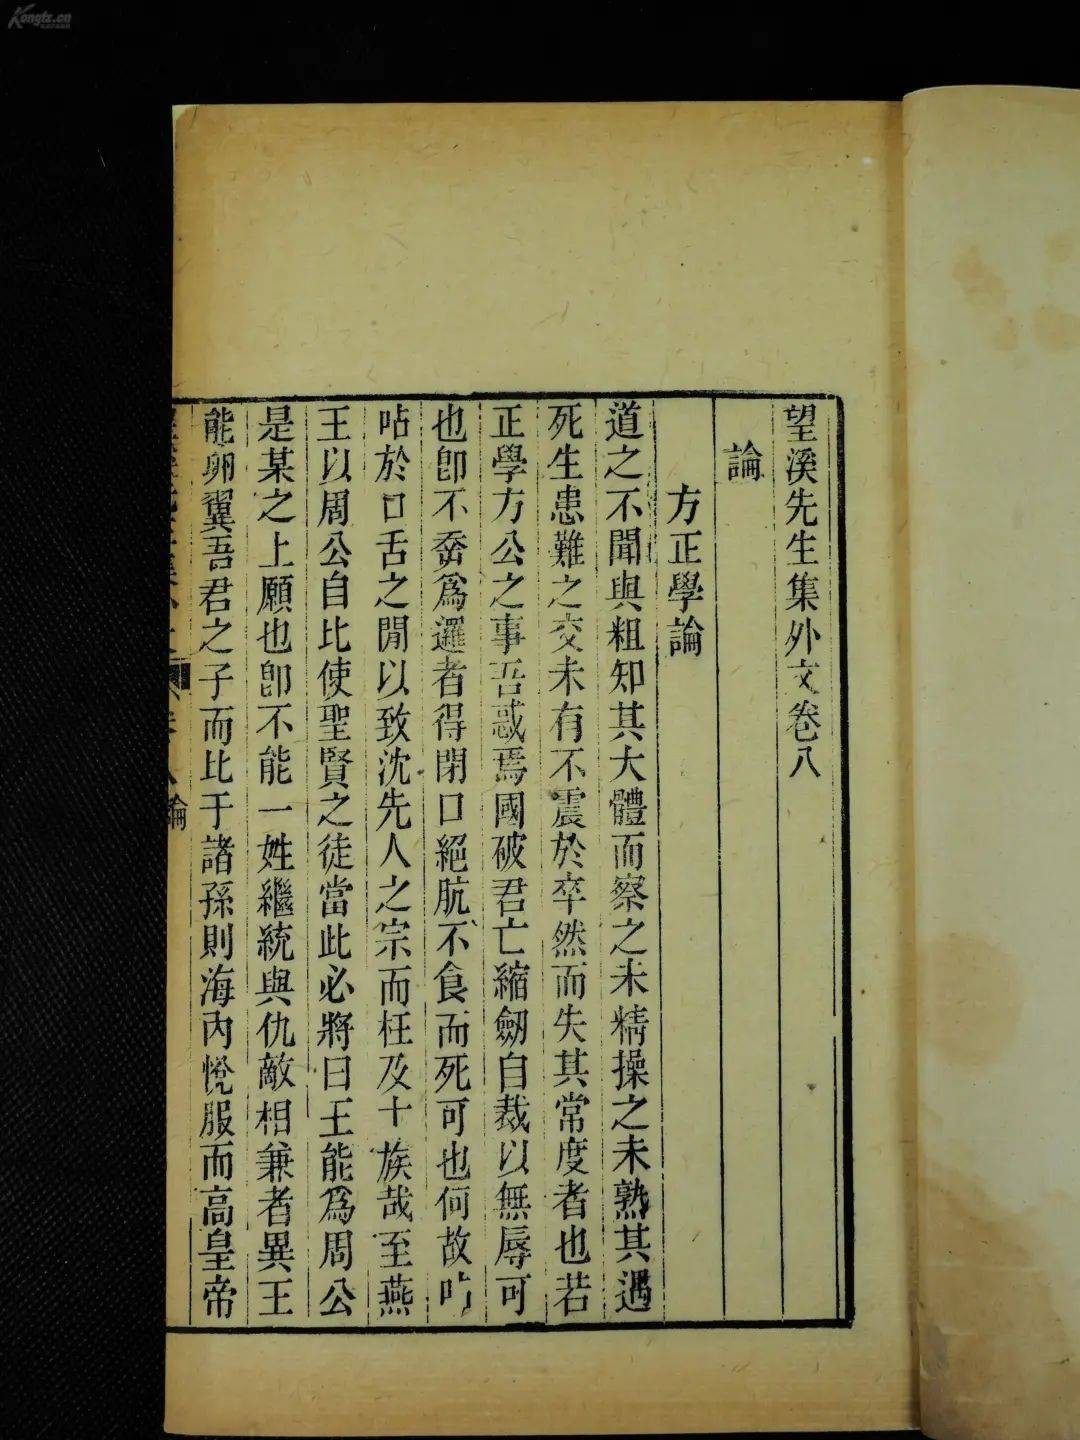 Kongfz.cn
望溪先生集外文卷八
論
方正學論
道之不聞與粗知其大體而察之未精操之未熟其遇
死生患難之交未有不震於卒然而失其常度者也若
正學方公之事吾惑焉國破君亡縮劒自裁以無辱可
也卽不齎爲邏者得閉口絕肮不食而死可也何故呫
呫於口舌之閒以致沈先人之宗而枉及十族哉至燕
王以周公自比使聖賢之徒當此必將曰王能爲周公
是某之上願也卽不能一姓繼統與仇敵相兼者異王
能卵翼吾君之子而比于諸孫則海內悅服而高皇帝
論